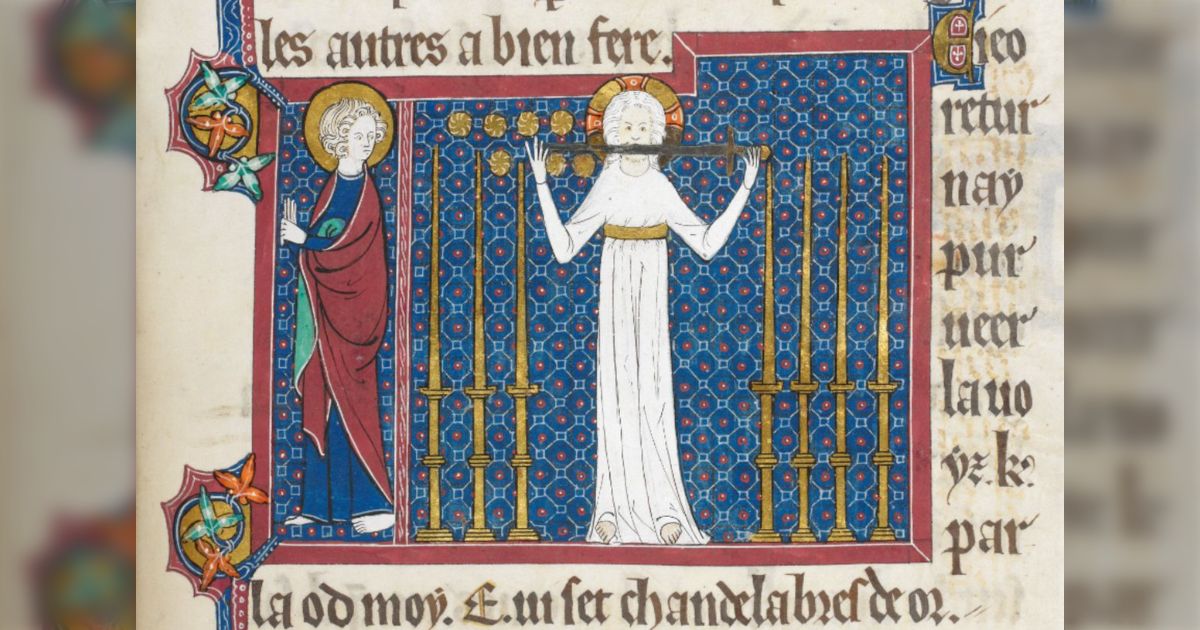 les autres a bien fere.
E ieo
retur
nay
pur
ueer
la uo
yz. k:
par
la od moy. E. ui set chandelabres de or.